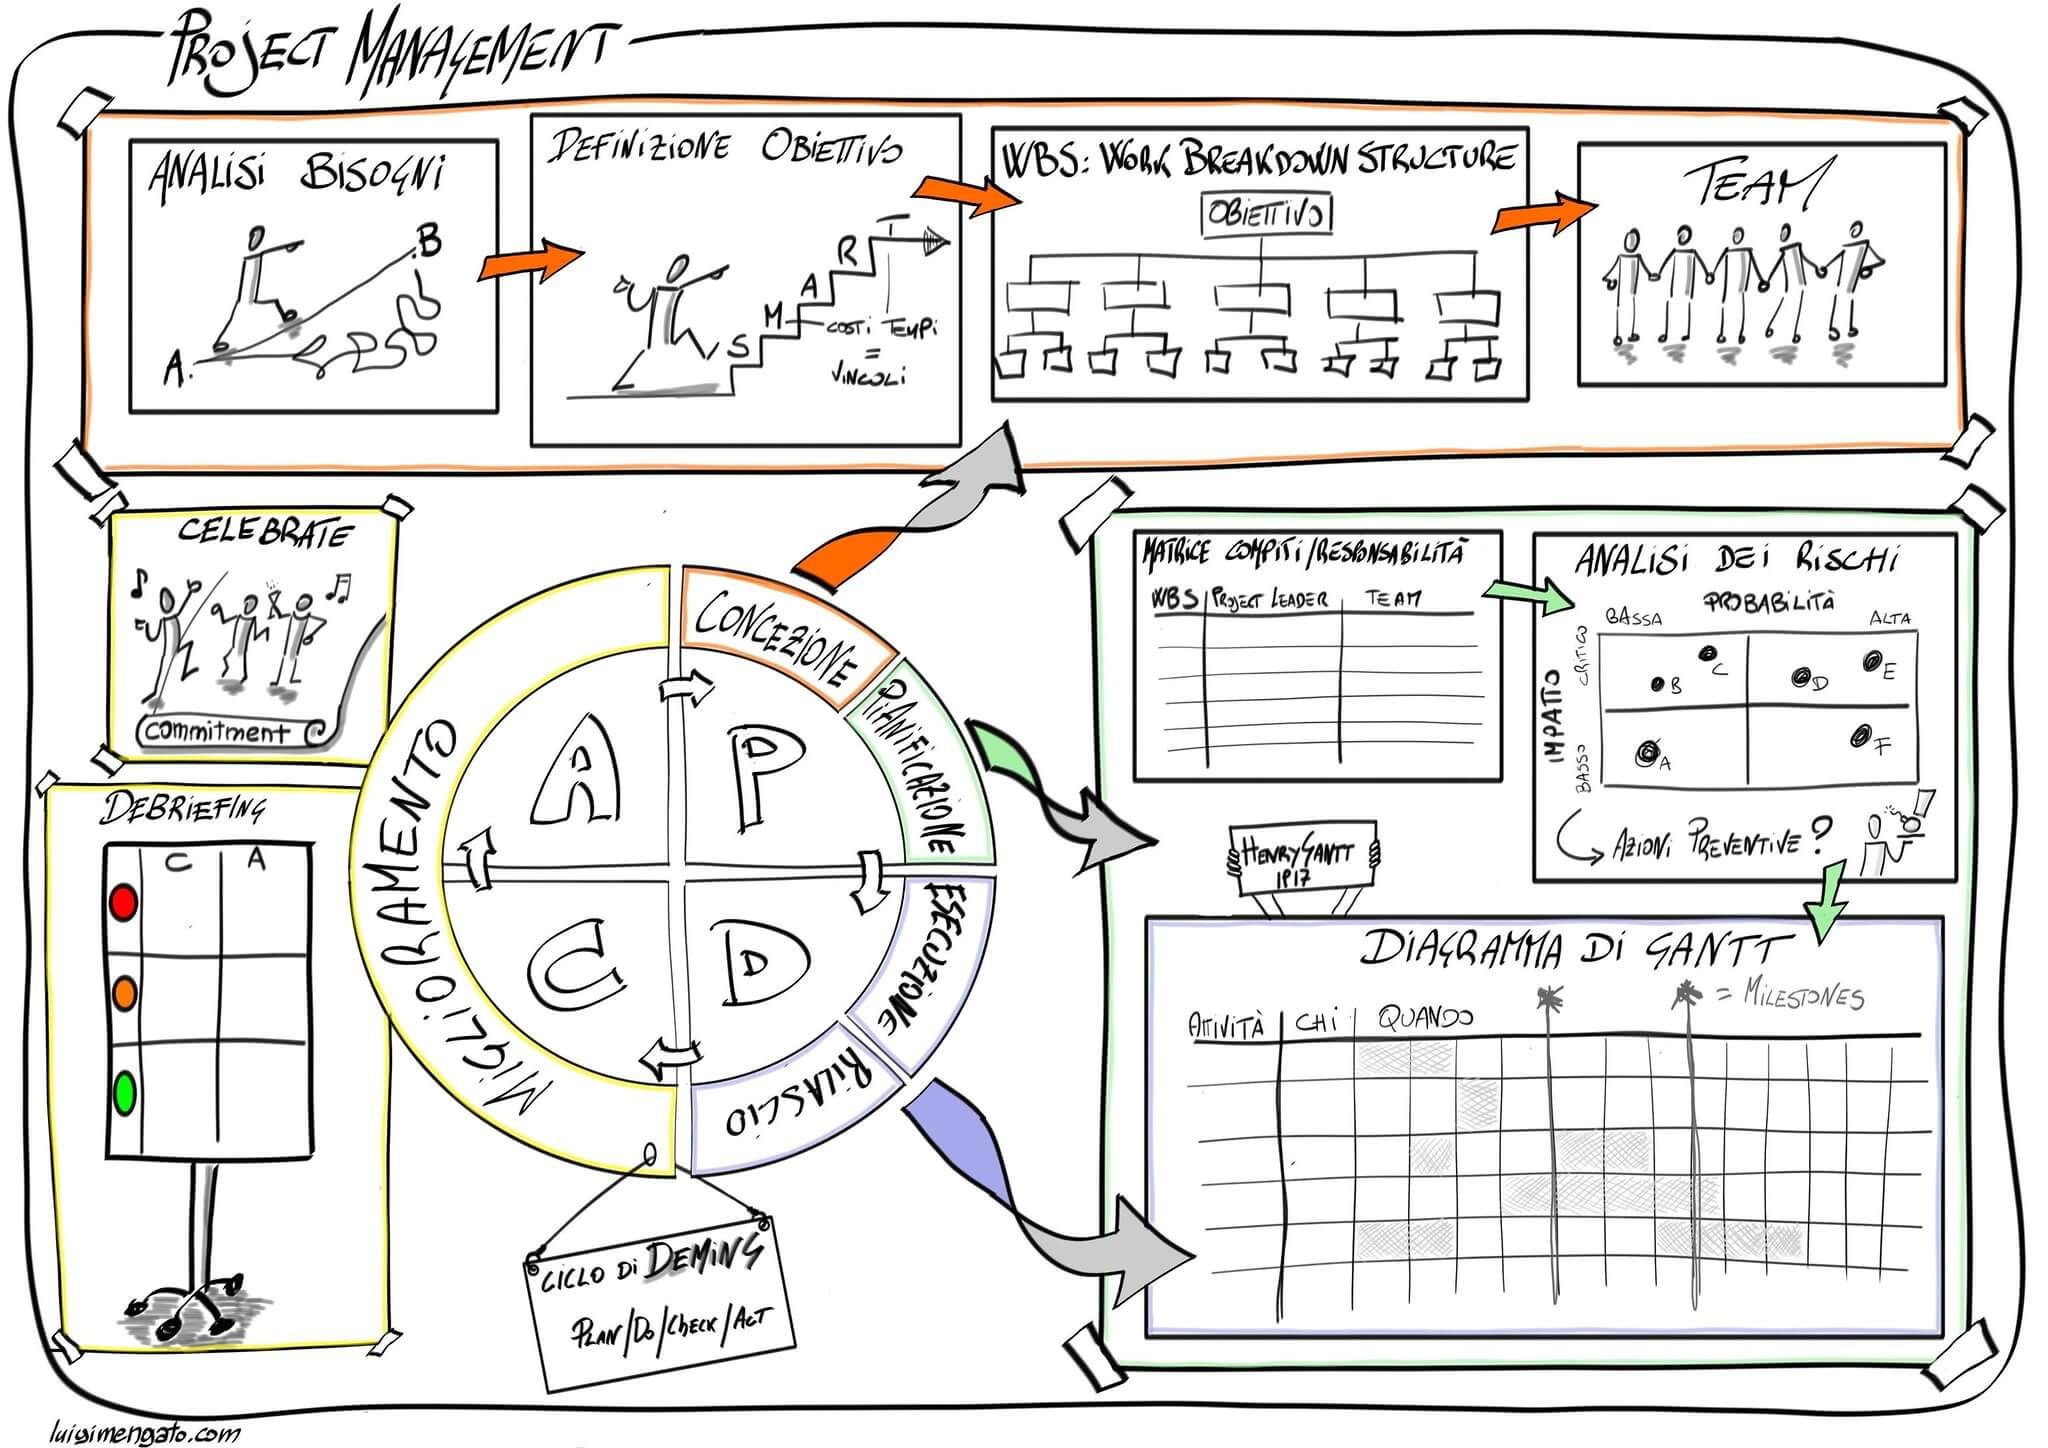 PROJECT MANAGEMENT
ANALISI BISOGNI
B
A.
DEFINIZIONE OBIETTIVO
S
M
A
R
T
COSTI TEMPI
=
VINCOLI
WBS: WORK BREAKDOWN STRUCTURE
OBIETTIVO
TEAM
CELEBRATE
commitment
DEBRIEFING
C A
CONCEZIONE
PIANIFICAZIONE
ESECUZIONE
RILASCIO
MIGLIORAMENTO
A P
C D
CICLO DI DEMING
PLAN/DO/CHECK/ACT
MATRICE COMPITI/RESPONSABILITÀ
WBS PROJECT LEADER TEAM
ANALISI DEI RISCHI
PROBABILITÀ
BASSA ALTA
IMPATO
CRITICO
BASSO
B
C
D
E
A
F
AZIONI PREVENTIVE?
HENRY GANTT
1917
DIAGRAMMA DI GANTT
= MILESTONES
ATTIVITÀ CHI QUANDO
luigimengato.com